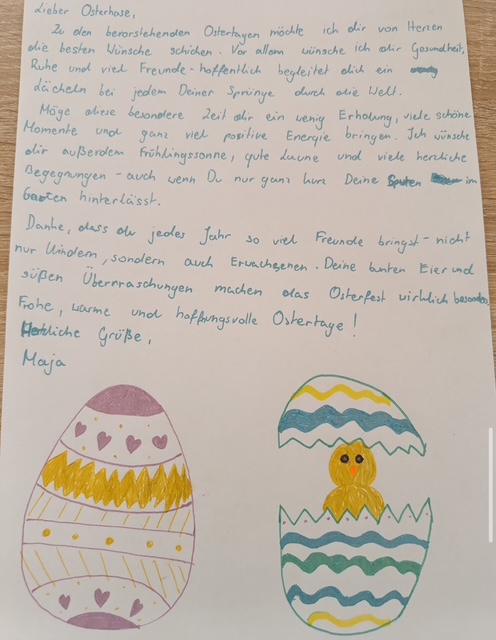 Lieber Osterhase,
Zu den bevorstehenden Ostertagen möchte ich dir von Herzen
die besten Wünsche schicken. Vor allem wünsche ich dir Gesundheit,
Ruhe und viel Freunde - hoffentlich begleitet dich ein
Lächeln bei jedem Deiner Sprünge durch die Welt.
Möge diese besondere Zeit dir ein wenig Erholung, viele schöne
Momente und ganz viel positive Energie bringen. Ich wünsche
dir außerdem Frühlingssonne, gute Laune und viele herzliche
Begegnungen - auch wenn Du nur ganz kurz Deine Spuren im
Garten hinterlässt.
Danke, dass du jedes Jahr so viel Freunde bringst - nicht
nur Kindern, sondern auch Erwachsenen. Deine bunten Eier und
süßen Überraschungen machen das Osterfest wirklich besonders
Frohe, warme und hoffnungsvolle Ostertage!
Herzliche Grüße,
Maja